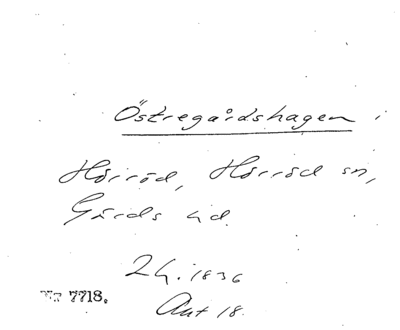 Östregårdshagen i
Hörröd, Hörröd sn,
Gärds hd.
Lh. 1836
Akt 18.
Nr 7718.